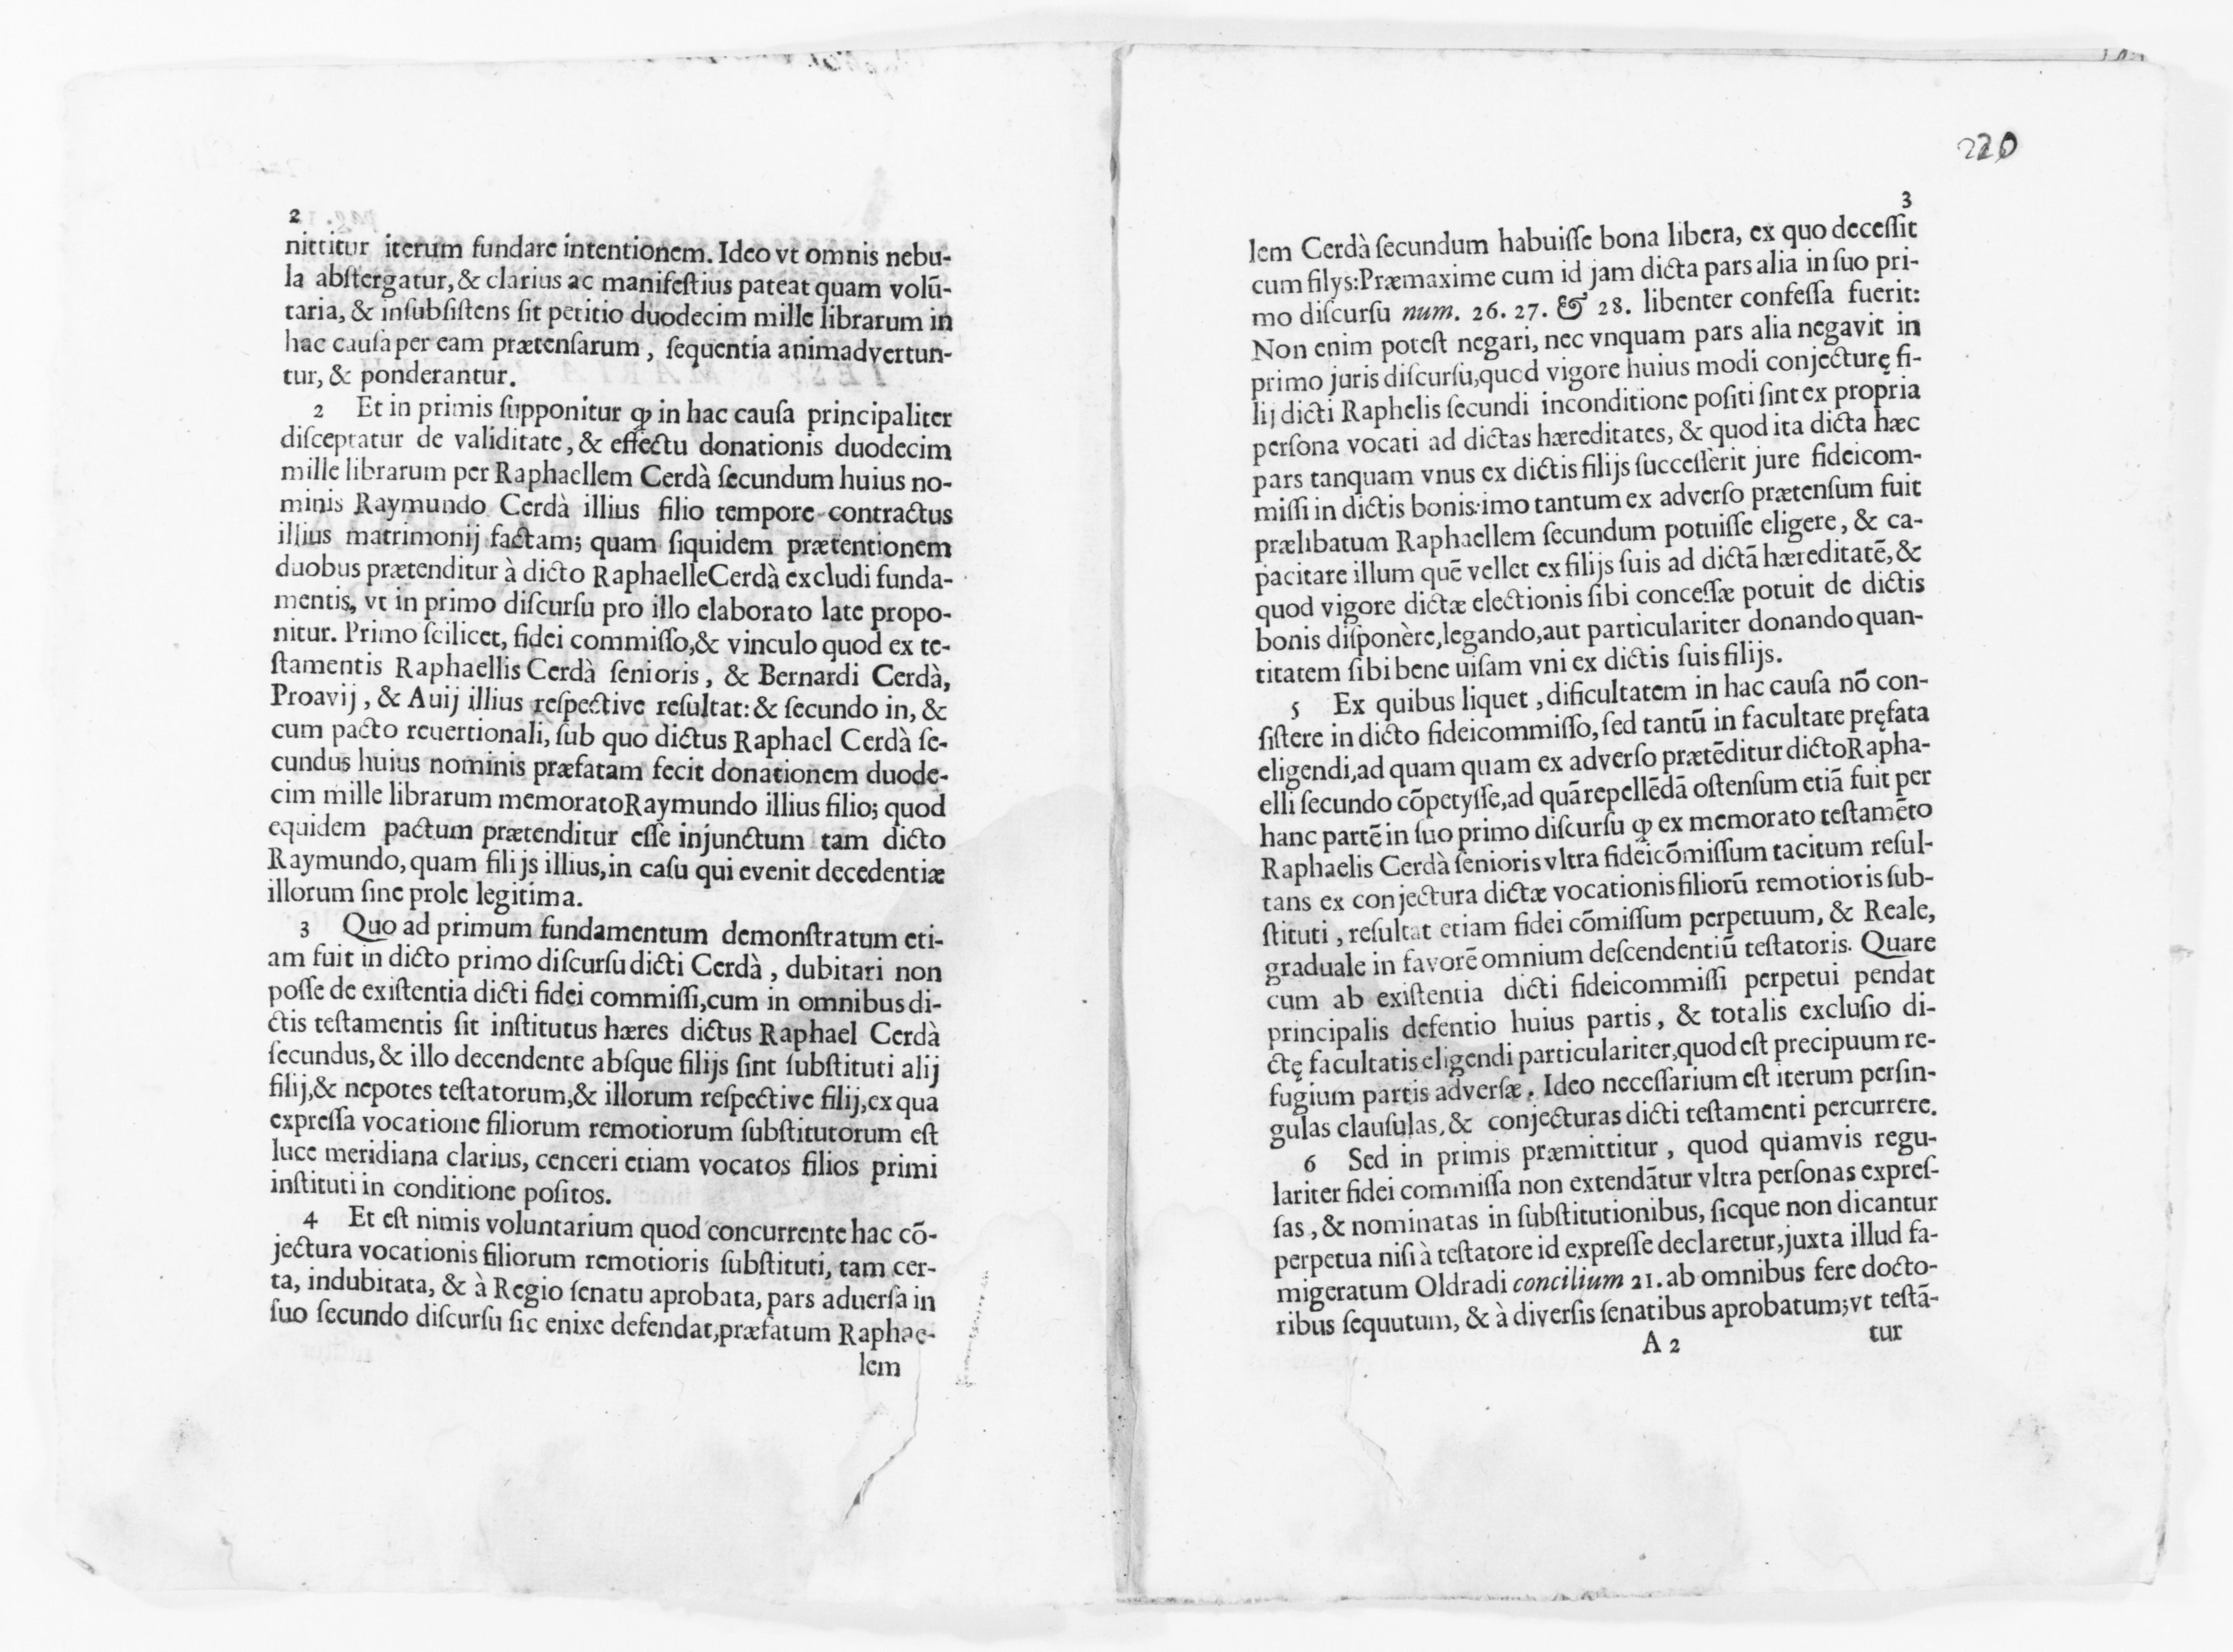 2
nittitur iterum fundare intentionem. Ideo vt omnis nebu-
la abſtergatur, & clarius ac manifeſtius pateat quam volū-
taria, & inſubſiſtens ſit petitio duodecim mille librarum in
hac cauſa per eam prætenſarum, ſequentia animadvertun-
tur, & ponderantur.
2 Et in primis ſupponitur ꝙ in hac cauſa principaliter
diſceptatur de validitate, & effectu donationis duodecim
mille librarum per Raphaellem Cerdà ſecundum huius no-
minis Raymundo Cerdà illius filio tempore contractus
illius matrimonij factam; quam ſiquidem prætentionem
duobus prætenditur à dicto Raphaelle Cerdà excludi funda-
mentis, vt in primo diſcurſu pro illo elaborato late propo-
nitur. Primo ſcilicet, fidei commiſſo, & vinculo quod ex te-
ſtamentis Raphaellis Cerdà ſenioris, & Bernardi Cerdà,
Proavij, & Auij illius reſpective reſultat: & ſecundo in, &
cum pacto reuertionali, ſub quo dictus Raphael Cerdà ſe-
cundus huius nominis præfatam fecit donationem duode-
cim mille librarum memorato Raymundo illius filio; quod
equidem pactum prætenditur eſſe injunctum tam dicto
Raymundo, quam filijs illius, in caſu qui evenit decedentiæ
illorum ſine prole legitima.
3 Quo ad primum fundamentum demonſtratum eti-
am fuit in dicto primo diſcurſu dicti Cerdà, dubitari non
poſſe de exiſtentia dicti fidei commiſſi, cum in omnibus di-
ctis teſtamentis ſit inſtitutus hæres dictus Raphael Cerdà
ſecundus, & illo decendente abſque filijs ſint ſubſtituti alij
filij, & nepotes teſtatorum, & illorum reſpective filij, ex qua
expreſſa vocatione filiorum remotiorum ſubſtitutorum eſt
luce meridiana clarius, cenceri etiam vocatos filios primi
inſtituti in conditione poſitos.
4 Et eſt nimis voluntarium quod concurrente hac cō-
jectura vocationis filiorum remotioris ſubſtituti, tam cer-
ta, indubitata, & à Regio ſenatu aprobata, pars aduerſa in
ſuo ſecundo diſcurſu ſic enixe defendat, præfatum Raphae-
lem
220
3
lem Cerdà ſecundum habuiſſe bona libera, ex quo deceſſit
cum filys: Præmaxime cum id jam dicta pars alia in ſuo pri-
mo diſcurſu num. 26. 27. & 28. libenter confeſſa fuerit:
Non enim poteſt negari, nec vnquam pars alia negavit in
primo juris diſcurſu, quod vigore huius modi conjecturę fi-
lij dicti Raphelis ſecundi inconditione poſiti ſint ex propria
perſona vocati ad dictas hæreditates, & quod ita dicta hæc
pars tanquam vnus ex dictis filijs ſucceſſerit jure fideicom-
miſſi in dictis bonis: imo tantum ex adverſo prætenſum fuit
prælibatum Raphaellem ſecundum potuiſſe eligere, & ca-
pacitare illum quē vellet ex filijs ſuis ad dictā hæreditatē, &
quod vigore dictæ electionis ſibi conceſſæ potuit de dictis
bonis diſponère, legando, aut particulariter donando quan-
titatem ſibi bene uiſam vni ex dictis ſuis filijs.
5 Ex quibus liquet, dificultatem in hac cauſa nō con-
ſiſtere in dicto fideicommiſſo, ſed tantū in facultate pręfata
eligendi, ad quam quam ex adverſo prætēditur dicto Rapha-
elli ſecundo cōpetyſſe, ad quā repellēdā oſtenſum etiā fuit per
hanc partē in ſuo primo diſcurſu ꝙ ex memorato teſtamēto
Raphaelis Cerdà ſenioris vltra fideicōmiſſum tacitum reſul-
tans ex conjectura dictæ vocationis filiorū remotioris ſub-
ſtituti, reſultat etiam fidei cōmiſſum perpetuum, & Reale,
graduale in favorē omnium deſcendentiū teſtatoris. Quare
cum ab exiſtentia dicti fideicommiſſi perpetui pendat
principalis defentio huius partis, & totalis excluſio di-
ctę facultatis eligendi particulariter, quod eſt precipuum re-
fugium partis adverſæ. Ideo neceſſarium eſt iterum perſin-
gulas clauſulas, & conjecturas dicti teſtamenti percurrere.
6 Sed in primis præmittitur, quod quamvis regu-
lariter fidei commiſſa non extendātur vltra perſonas expreſ-
ſas, & nominatas in ſubſtitutionibus, ſicque non dicantur
perpetua niſi à teſtatore id expreſſe declaretur, juxta illud fa-
migeratum Oldradi concilium 21. ab omnibus fere docto-
ribus ſequutum, & à diverſis ſenatibus aprobatum; vt teſtā-
A 2 tur